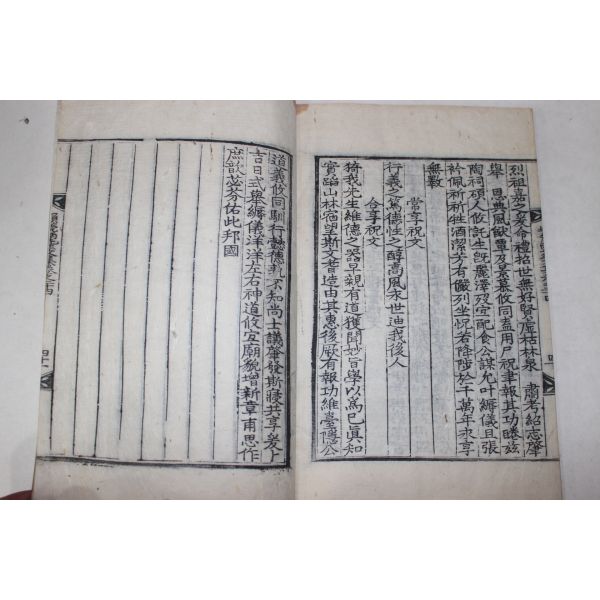 烈祖嘉乃爰命禮招世無好賢虛枯林泉　肅考紹志肇
擧　恩典風歆覃及景慕攸同盍用尸祝聿報其功睠玆
陶祠碩人攸託生旣麗澤歿宜配食公謀允叶縟儀且張
衿佩祈祈牲酒潔芳有儼列坐怳若陟降於千萬年永享
無斁
常享祝文
行義之篤德性之醇高風永世迪我後人
合享祝文
猗我先生維德之器早親有道獲聞妙旨學以爲己眞知
實蹈山林宿望斯文耆造由其惠後厥有報功維臺隱公
道義攸同馴行懿德孰不知尙士議肇發斯躋共享爰卜
吉日式擧縟儀洋洋左右神道攸宜廟貌增新章甫思作
庶歆苾芬佑此邦國